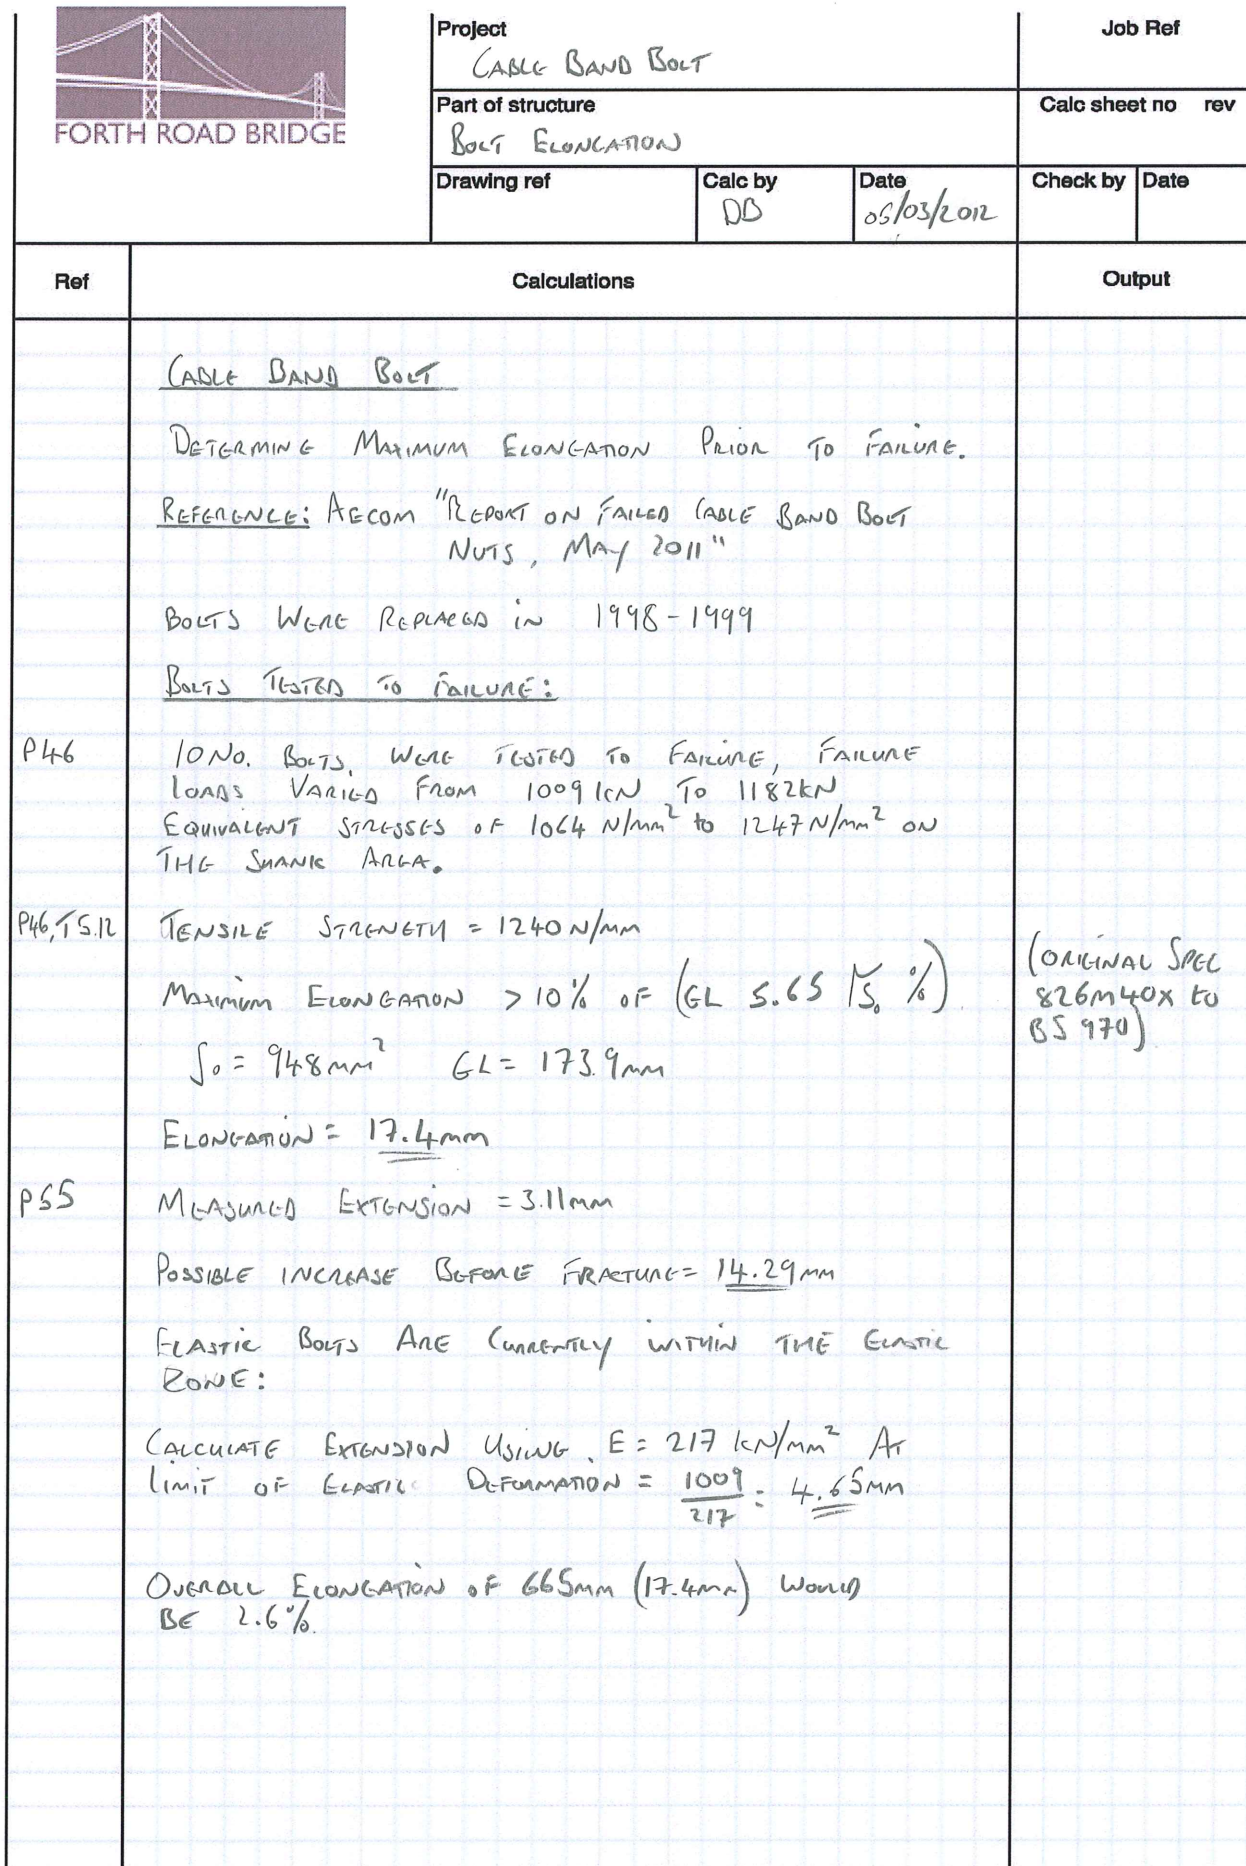 FORTH ROAD BRIDGE
Project
CABLE BAND BOLT
Job Ref
Part of structure
BOLT ELONGATION
Calc sheet no rev
Drawing ref
Calc by
DB
Date
05/03/2012
Check by
Date
Ref
Calculations
Output
CABLE BAND BOLT
DETERMINE MAXIMUM ELONGATION PRIOR TO FAILURE.
REFERENCE: AECOM "REPORT ON FAILED CABLE BAND BOLT
NUTS, MAY 2011"
BOLTS WERE REPLACED IN 1998-1999
BOLTS TESTED TO FAILURE:
P46
10 NO. BOLTS, WERE TESTED TO FAILURE, FAILURE
LOADS VARIED FROM 1009 kN TO 1182kN
EQUIVALENT STRESSES OF 1064 N/mm² to 1247 N/mm² ON
THE SHANK AREA.
P46, T5.12
TENSILE STRENGTH = 1240 N/MM
MAXIMUM ELONGATION > 10% OF (GL 5.65 √S₀ %)
(ORIGINAL SPEC
826m40x to
BS 970)
S₀ = 948mm² GL = 173.9mm
ELONGATION = 17.4mm
P55
MEASURED EXTENSION = 3.11mm
POSSIBLE INCREASE BEFORE FRACTURE = 14.29mm
ELASTIC BOLTS ARE CURRENTLY WITHIN THE ELASTIC
ZONE:
CALCULATE EXTENSION USING E = 217 kN/mm² AT
LIMIT OF ELASTIC DEFORMATION = 1009/217 = 4.65mm
OVERALL ELONGATION OF 665mm (17.4mm) WOULD
BE 2.6%.